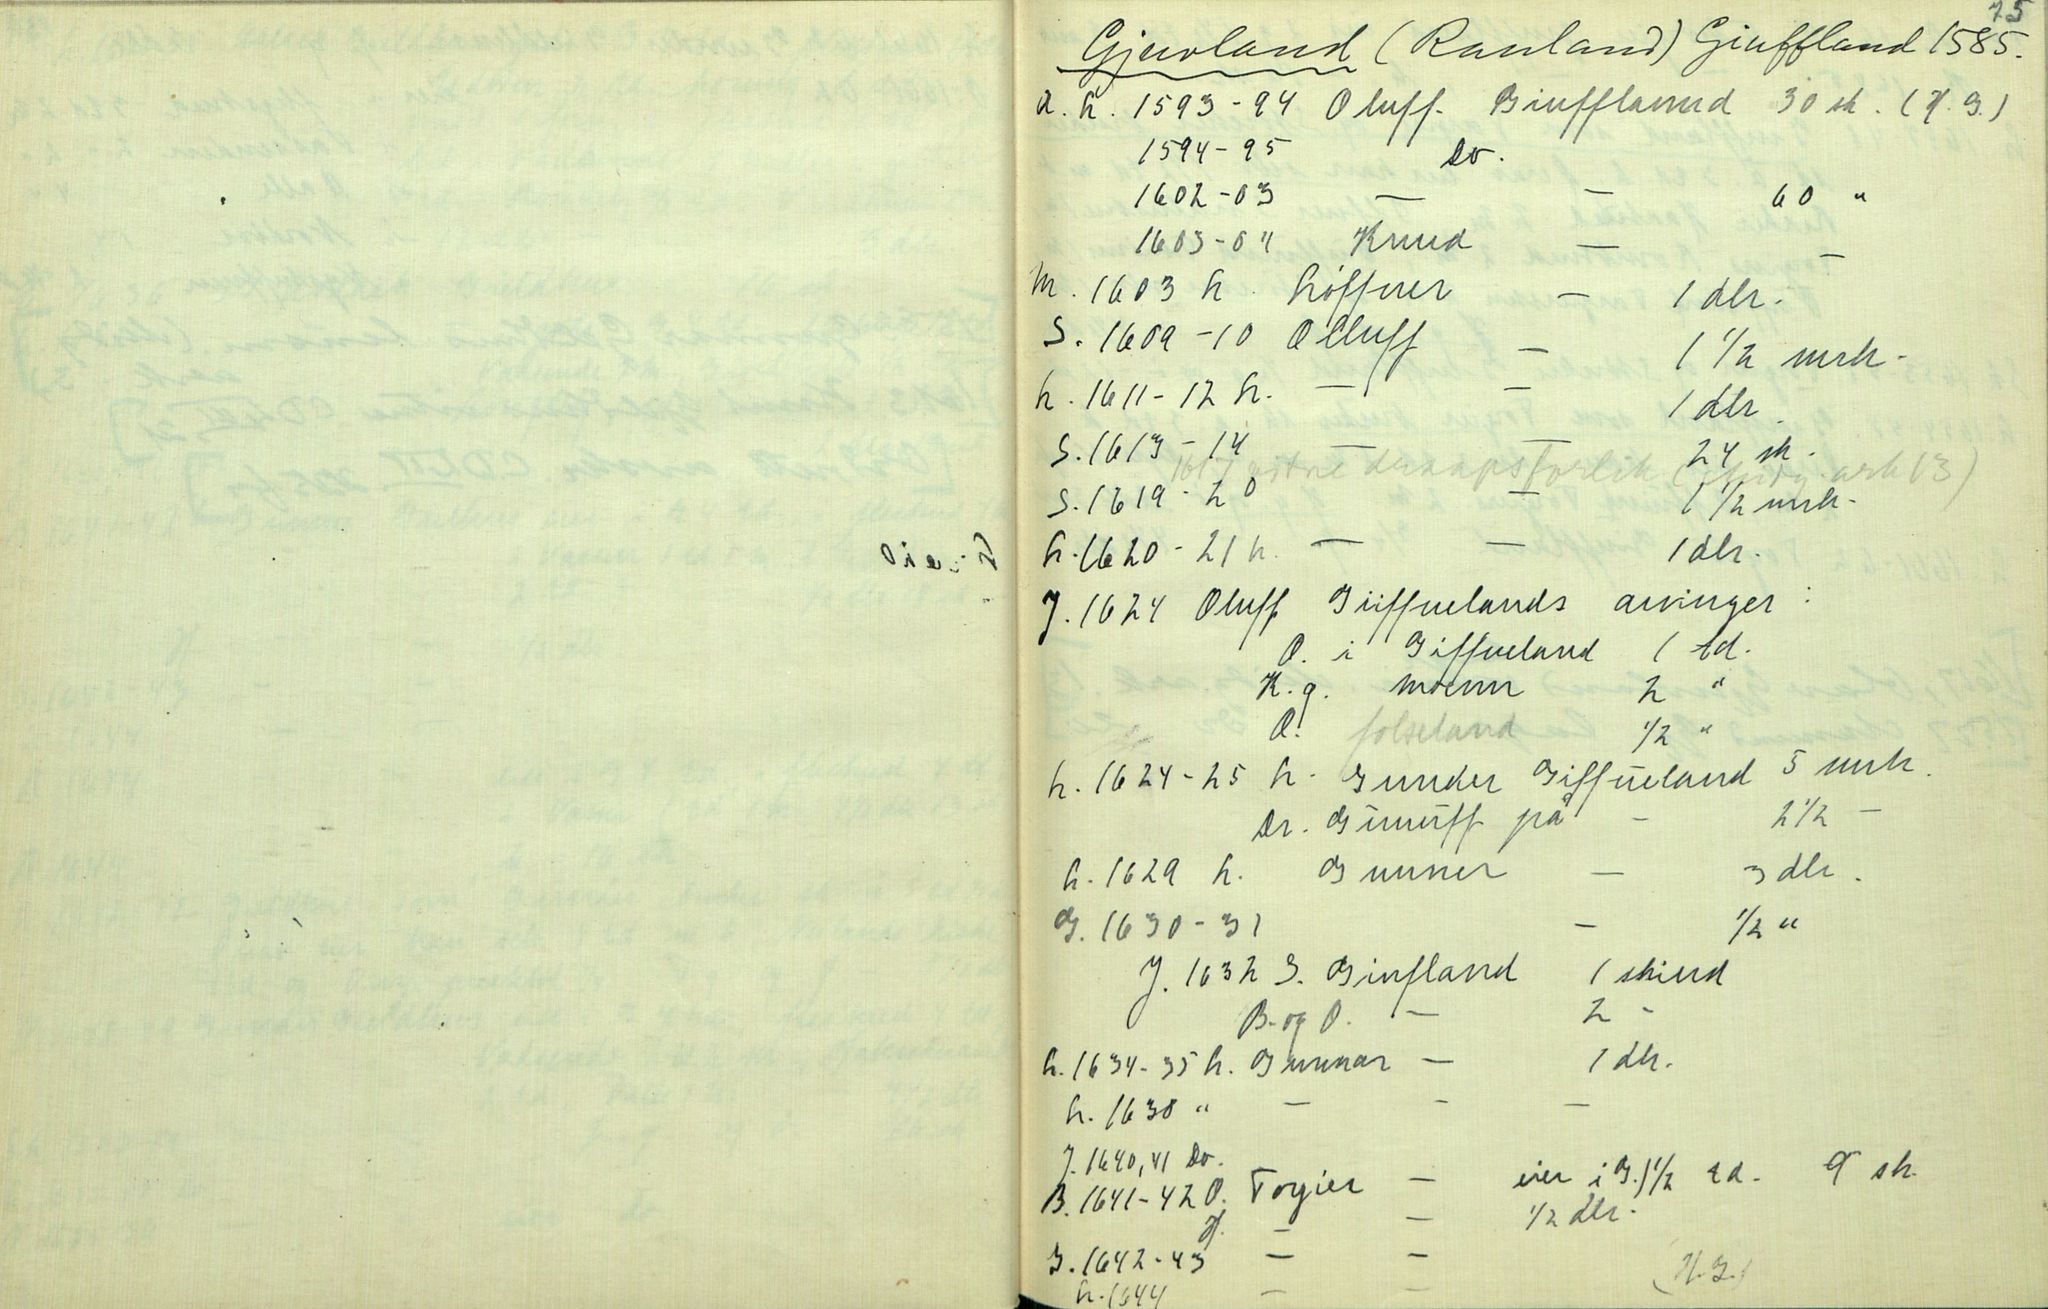 75
Gjuvland (Rauland) Giuffland 1585.
L. 1593-94 Oluff Giufflannd 30 sk. (H. G.)
1594-95 Do.
1602-03 — — 60 "
1603-04 Knud — —
M. 1603 L. Löffner — 1 dlr.
S. 1609-10 Olluff — 1 1/2 mrk.
L. 1611-12 L. — — 1 dlr.
S. 1613-14 — — 24 sk.
1617 ark 13)
S. 1619-20 — 1 1/2 mrk.
L. 1620-21 L. — — 1 dlr.
J. 1624 Oluff Giiffuelands arvinger:
O. i Giffueland 1 td.
H. g. moenn 2 "
O. folseland 1/2 "
L. 1624-25 L. Gunder Giffueland 5 mrk.
Dr. på — 2 1/2 —
L. 1629 L. Gunner — 3 dlr.
G. 1630-31 — 1/2 "
J. 1632 G. Giufland 1 skind
B. og O. — 2 -
L. 1634-35 L. Gunnar — 1 dlr.
L. 1638 " — - —
J. 1640, 41 Do.
B. 1641-42 O. Torgier — eier i G. 1 1/2 td. 9 sk.
H. — — 1/2 dlr.
G. 1642-43 — — (H. G.)
L. 1644 — —